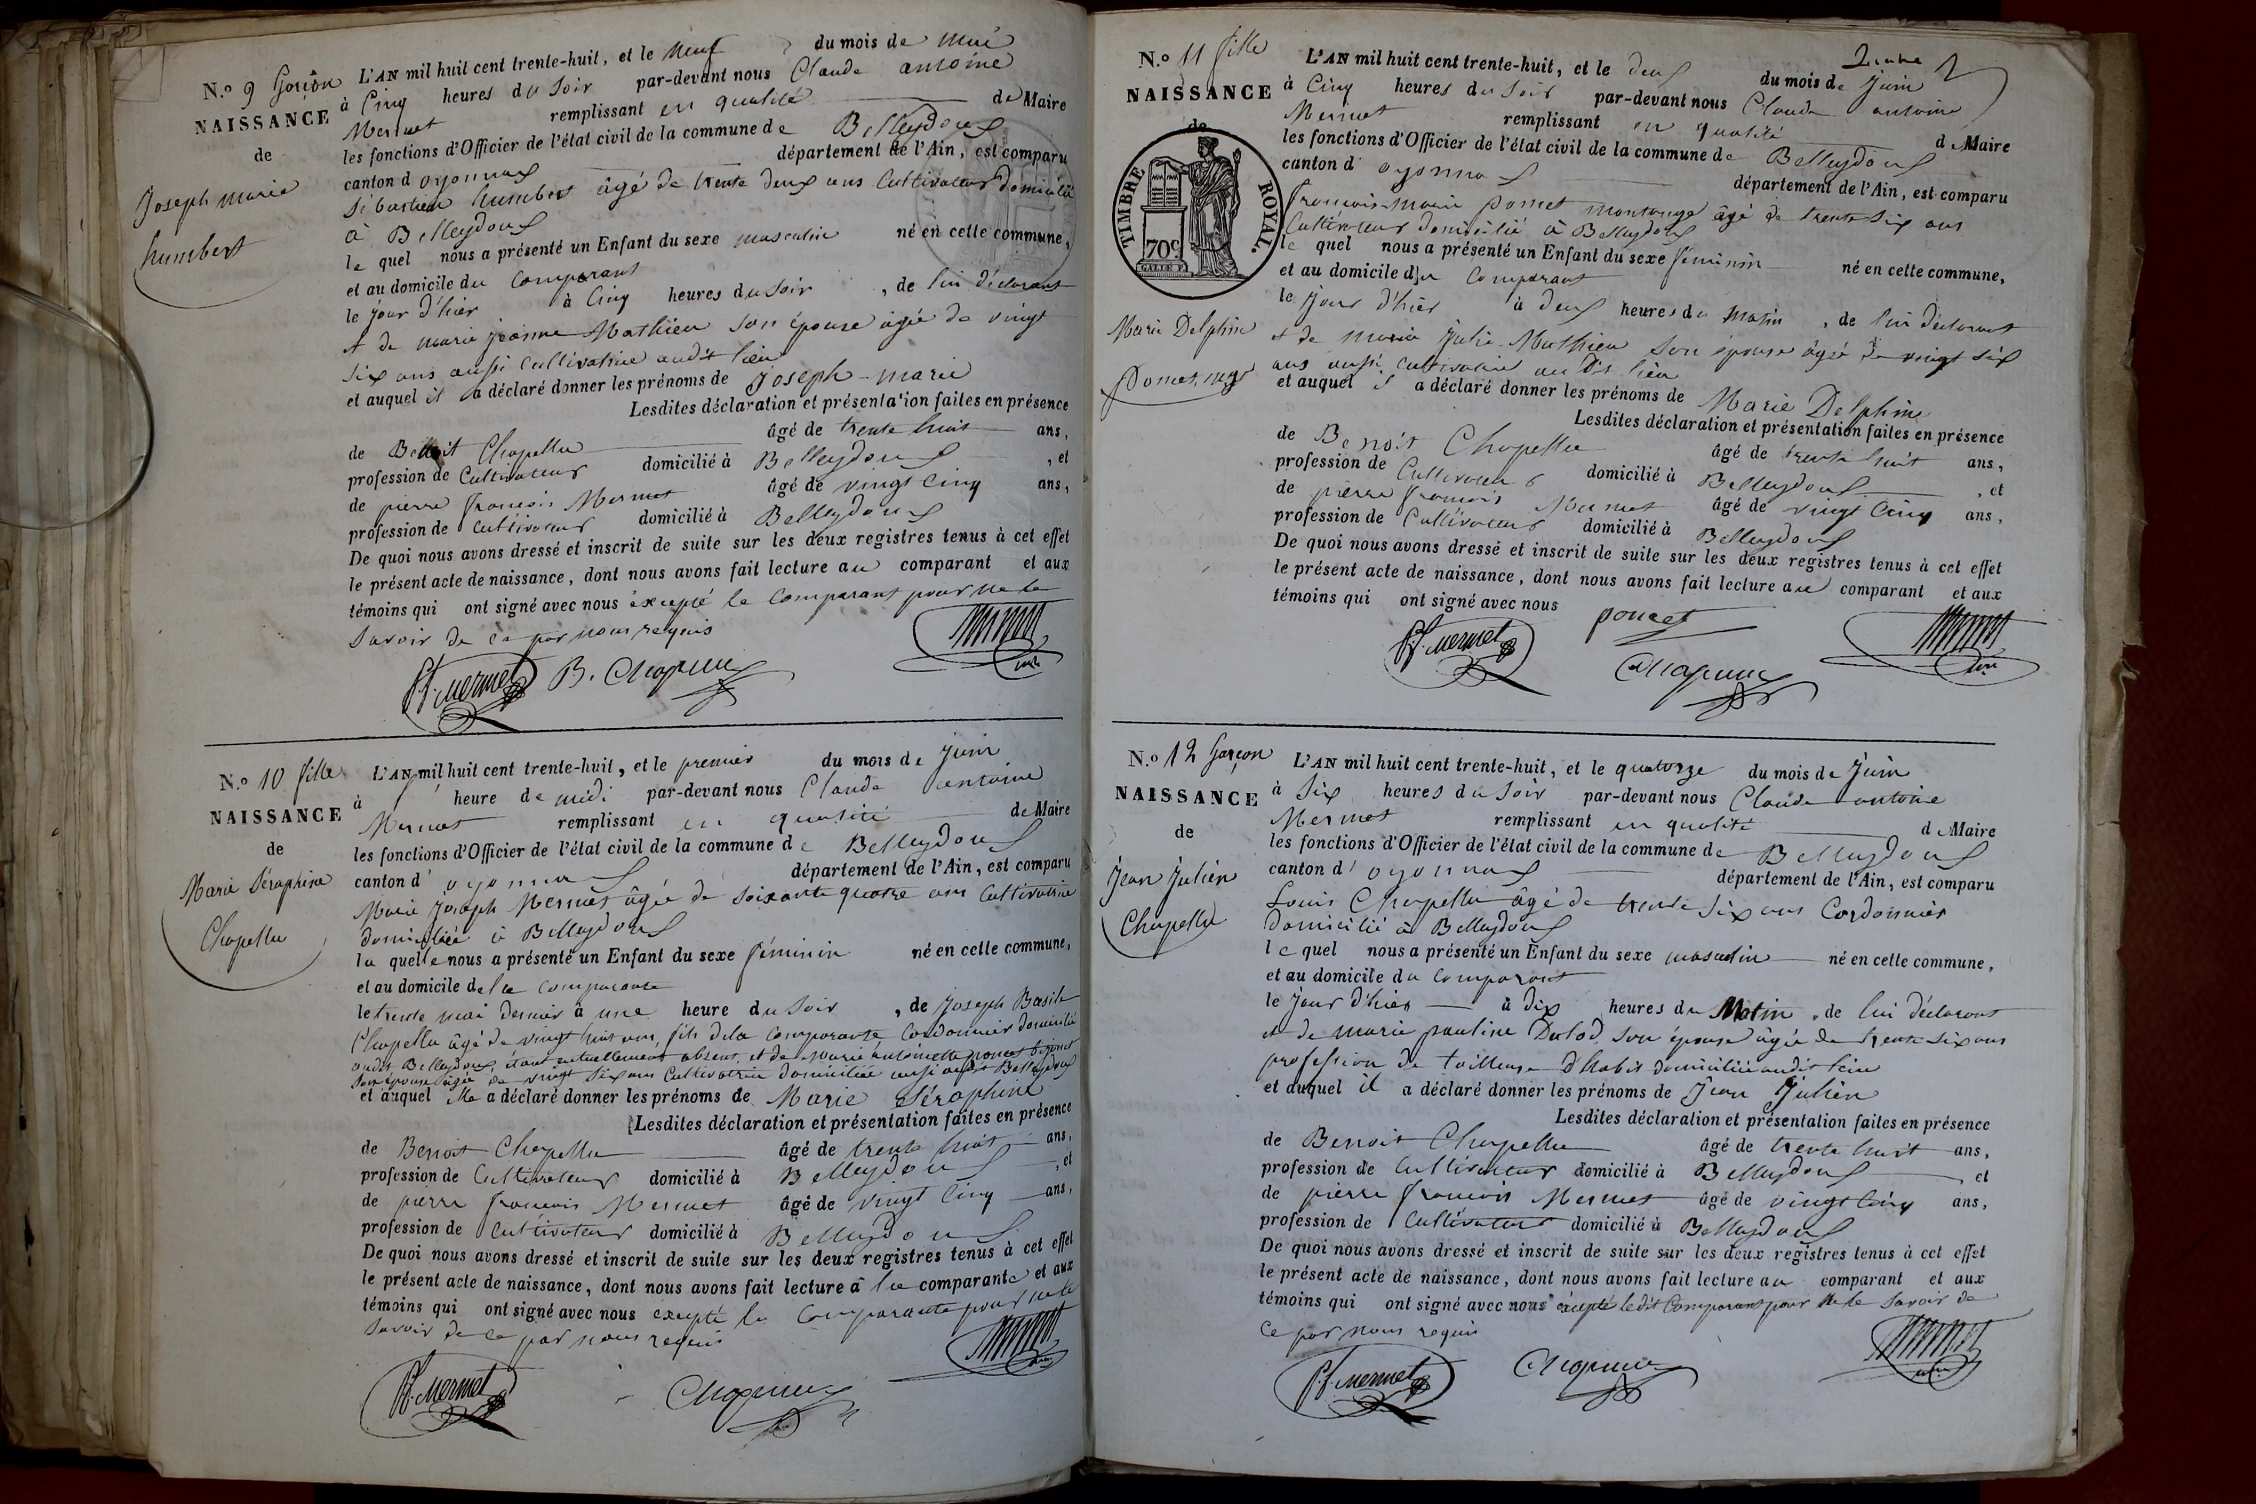 N.o 9 Garçon
NAISSANCE
de
Joseph marie
humbert
L'AN mil huit cent trente-huit, et le neuf du mois de mai
à Cinq heures du Soir par-devant nous Claude antoine
Mermet remplissant en qualité de Maire
les fonctions d'Officier de l'état civil de la commune de Belleydoux
canton d oyonnax département de l'Ain, est comparu
Sébastien humbert âgé de trente deux ans Cultivateur domicilié
à Belleydoux
le quel nous a présenté un Enfant du sexe masculin né en cette commune,
et au domicile du Comparant
le jour d'hier à Cinq heures du Soir, de lui déclarant
et de marie jeanne Mathieu son épouse âgée de vingt
six ans aussi Cultivatrice audit lieu
et auquel il a déclaré donner les prénoms de Joseph-marie
Lesdites déclaration et présentation faites en présence
de Benoit Chapellu âgé de trente huit ans,
profession de Cultivateur domicilié à Belleydoux, et
de pierre françois Mermet âgé de vingt Cinq ans,
profession de Cultivateur domicilié à Belleydoux
De quoi nous avons dressé et inscrit de suite sur les deux registres tenus à cet effet
le présent acte de naissance, dont nous avons fait lecture au comparant et aux
témoins qui ont signé avec nous excepté le Comparant pour ne le
Savoir de ce par nous requis
P.f. Mermet B. Chapellu Mermet
N.o 10 fille
NAISSANCE
de
Marie Séraphine
Chapellu
L'AN mil huit cent trente-huit, et le premier du mois de Juin
à heure de midi par-devant nous Claude antoine
Mermet remplissant en qualité de Maire
les fonctions d'Officier de l'état civil de la commune de Belleydoux
canton d' oyonnax département de l'Ain, est comparu
Marie Joseph Mermet âgée de soixante quatre ans Cultivatrice
domiciliée à Belleydoux
la quelle nous a présenté un Enfant du sexe féminin né en cette commune,
et au domicile de la comparante
le trente mai dernier à une heure du Soir, de Joseph Basile
Chapellu âgé de vingt huit ans, fils de la Comparante Cordonnier domicilié
audit Belleydoux, étant actuellement absent, et de Marie antoinette poncet
son épouse âgée de vingt six ans Cultivatrice domiciliée aussi audit Belleydoux
et auquel elle a déclaré donner les prénoms de Marie Séraphine
Lesdites déclaration et présentation faites en présence
de Benoit Chapellu âgé de trente huit ans,
profession de Cultivateur domicilié à Belleydoux, et
de pierre françois Mermet âgé de vingt Cinq ans,
profession de Cultivateur domicilié à Belleydoux
De quoi nous avons dressé et inscrit de suite sur les deux registres tenus à cet effet
le présent acte de naissance, dont nous avons fait lecture à la comparante et aux
témoins qui ont signé avec nous excepté la Comparante pour ne le
Savoir de ce par nous requis
P.f. Mermet Chapellu Mermet
N.o 11 fille
NAISSANCE
de
TIMBRE ROYAL.
70c.
Marie Delphine
L'AN mil huit cent trente-huit, et le deux du mois de Juin
à Cinq heures du Soir par-devant nous Claude antoine
Mermet remplissant en qualité de Maire
les fonctions d'Officier de l'état civil de la commune de Belleydoux
canton d' oyonnax département de l'Ain, est comparu
françois-marie poncet montange âgé de trente six ans
Cultivateur domicilié à Belleydoux
le quel nous a présenté un Enfant du sexe féminin né en cette commune,
et au domicile du Comparant
le jour d'hier à deux heures du matin, de lui déclarant
et de marie Julie Mathieu son épouse âgée de vingt six
ans aussi Cultivatrice au dit lieu
et auquel il a déclaré donner les prénoms de Marie Delphine
Lesdites déclaration et présentation faites en présence
de Benoit Chapellu âgé de trente huit ans,
profession de Cultivateur domicilié à Belleydoux, et
de pierre françois Mermet âgé de vingt Cinq ans,
profession de Cultivateur domicilié à Belleydoux
De quoi nous avons dressé et inscrit de suite sur les deux registres tenus à cet effet
le présent acte de naissance, dont nous avons fait lecture au comparant et aux
témoins qui ont signé avec nous
P.f. Mermet poncet Chapellu Mermet
N.o 12 Garçon
NAISSANCE
de
jean Julien
Chapellu
L'AN mil huit cent trente-huit, et le quatorze du mois de Juin
à Six heures du Soir par-devant nous Claude antoine
Mermet remplissant en qualité de Maire
les fonctions d'Officier de l'état civil de la commune de Belleydoux
canton d' oyonnax département de l'Ain, est comparu
Louis Chapellu âgé de trente six ans Cordonnier
domicilié à Belleydoux
le quel nous a présenté un Enfant du sexe masculin né en cette commune,
et au domicile du Comparant
le jour d'hier à dix heures du Matin, de lui déclarant
et de marie pauline Dutod son épouse âgée de trente six ans
profession de tailleuse d'habit domiciliée audit lieu
et auquel il a déclaré donner les prénoms de Jean Julien
Lesdites déclaration et présentation faites en présence
de Benoit Chapellu âgé de trente huit ans,
profession de Cultivateur domicilié à Belleydoux et
de pierre françois Mermet âgé de vingt Cinq ans,
profession de Cultivateur domicilié à Belleydoux
De quoi nous avons dressé et inscrit de suite sur les deux registres tenus à cet effet
le présent acte de naissance, dont nous avons fait lecture au comparant et aux
témoins qui ont signé avec nous excepté ledit Comparant pour ne le Savoir de
Ce par nous requis
P.f. Mermet Chapellu Mermet